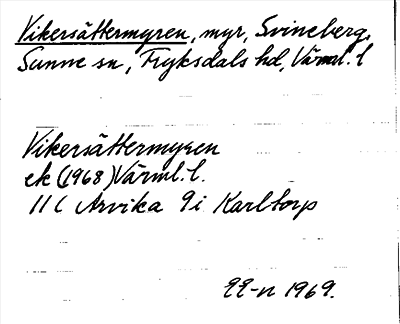 Vikersättermyren, myr, Svineberg,
Sunne sn, Fryksdals hd, Värml. l
Vikersättermyren
ek (1968) Värml. l.
11 C Arvika 9 i Karltorp
1969.